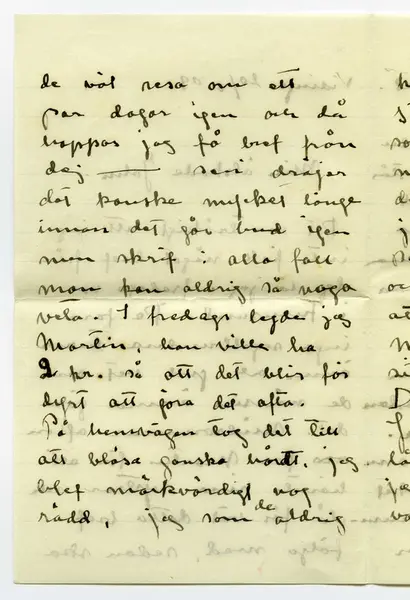 de väl resa om ett
par dagar igen och då
hoppas jag få bref från
dej — sen dröjer
det kanske mycket länge
innan det går bud igen
men skrif i alla fall
man kan aldrig så noga
veta. I fredags legde jag
Martin, han ville ha
2 kr. så att det blir för
dyrt att göra det ofta.
På hemvägen tog det till
att blåsa ganska hårdt, jag
blef märkvärdigt nog
rädd, jag som de aldrig